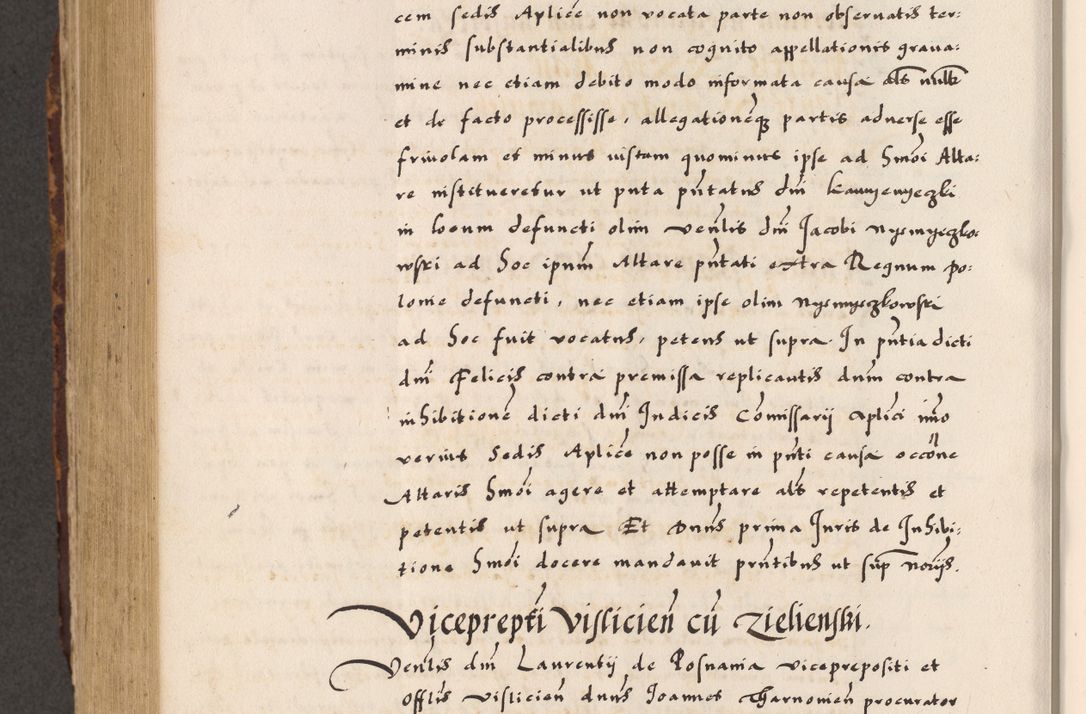 cem sedis Aplice non vocata parte non obseruatis ter:
minis substantialibus non cognito appellationis graua:
mine nec etiam debito modo informata causa als null
et de facto processisse, allegationesq partis aduerse esse
friuolam et minus iustam quominus ipse ad hmoi Alta:
re institueretur ut pnta pntatus dni
in locum defuncti olim venlis dni Jacobi Nyemyeczko:
wski ad hoc ipsum Altare pntati extra Regnum Po:
lonie defuncti, nec etiam ipse olim Nyemyeczkowski
ad hoc fuit vocatus, petens ut supra. In pntia dicti
dni Felicis contra premissa replicantis dnm contra
inhibitione dicti dni Judicis Comissarij Aplici imo
verius Sedis Aplice non posse in pnti causa occone
Altaris hmoi agere et attemptare als repetentis et
petentis ut supra Et Dnus prima Juris de Inhibi:
tione hmoi docere mandauit pntibus ut sup noriis.
Viceprepti Vislicien cu Zielienski.
Venlis dni Laurentij de Posnania viceprepositi et
Offlis Vislicien dnus Joannes Tharnowien procurator